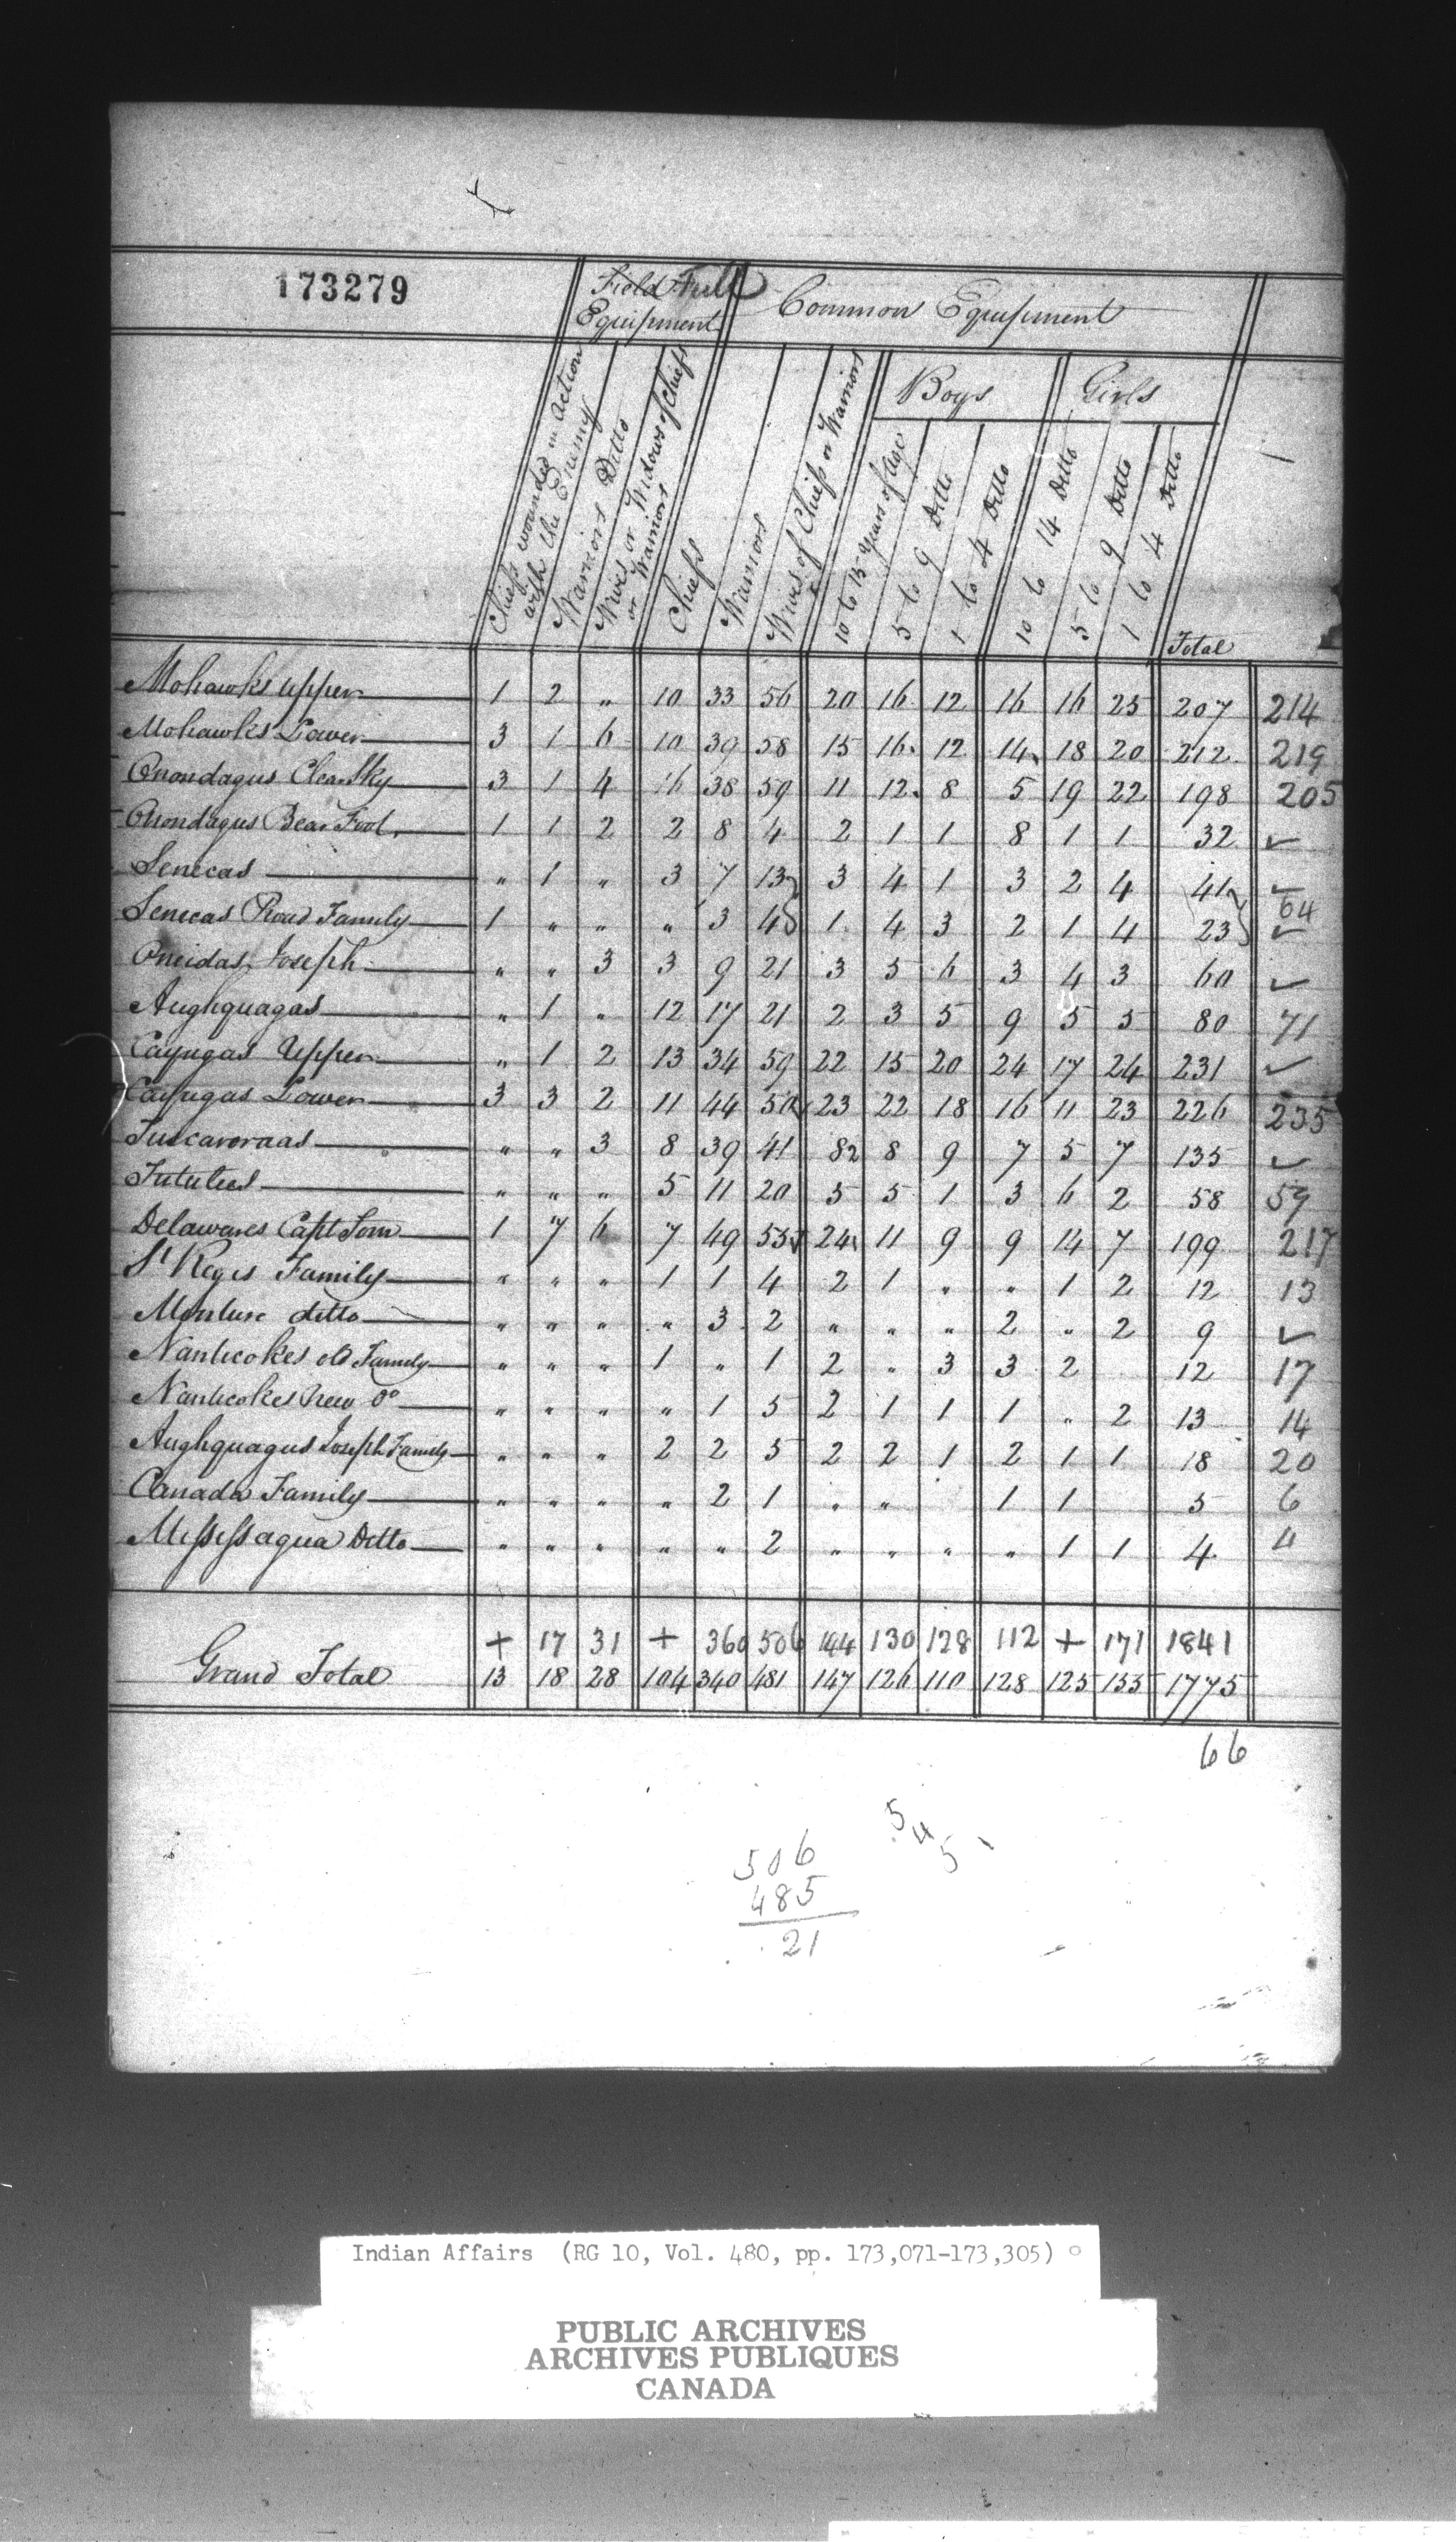 173279
Field Full
Equipment
Common Equipment
Boys
Girls
Chiefs wounded in action
with the Enemy
Warriors Ditto
Wives or Widows of Chiefs
or Warriors
Chiefs
Warriors
Wives of Chiefs or Warriors
10 to 15 Years of Age
5 to 9 Ditto
1 to 4 Ditto
10 to 14 Ditto
5 to 9 Ditto
1 to 4 Ditto
Total
Mohawks Upper 1 2 " 10 33 56 20 16 12 16 16 25 207 214
Mohawks Lower 3 1 6 10 39 58 15 16 12 14 18 20 212 219
Onondagus Clear Sky 3 1 4 16 38 59 11 12 8 5 19 22 198 205
Onondagus Bear Foot 1 1 2 2 8 4 2 1 1 8 1 1 32 ✓
Senecas " 1 " 3 7 13 3 4 1 3 2 4 41 ✓
64
Senecas Road Family 1 " " " 3 4 1 4 3 2 1 4 23 ✓
Oneidas Joseph " " 3 3 9 21 3 5 6 3 4 3 60 ✓
Aughquagas " 1 " 12 17 21 2 3 5 9 5 5 80 71
Cayugas Upper " 1 2 13 34 59 22 15 20 24 17 24 231 ✓
Cayugas Lower 3 3 2 11 44 50 23 22 18 16 11 23 226 235
Tuscaroraas " " 3 8 39 41 82 8 9 7 5 7 135 ✓
Tutulies " " " 5 11 20 5 5 1 3 6 2 58 59
Delawares Capt Tom 1 7 6 7 49 55 24 11 9 9 14 7 199 217
St Regis Family " " " 1 1 4 2 1 " " 1 2 12 13
Monture ditto " " " " 3 2 " " " 2 " 2 9 ✓
Nanticokes old Family " " " 1 " 1 2 " 3 3 2 12 17
Nanticokes New Do " " " " 1 5 2 1 1 1 " 2 13 14
Aughquagus Joseph Family " " " 2 2 5 2 2 1 2 1 1 18 20
Canada Family " " " " 2 1 " " 1 1 5 6
Messessagua Ditto " " " " " 2 " " " " 1 1 4 4
+ 17 31 + 360 506 144 130 128 112 + 171 1841
Grand Total 13 18 28 104 340 481 147 126 110 128 125 155 1775
66
506
485
21
5 4 5
Indian Affairs (RG 10, Vol. 480, pp. 173,071-173,305)
PUBLIC ARCHIVES
ARCHIVES PUBLIQUES
CANADA